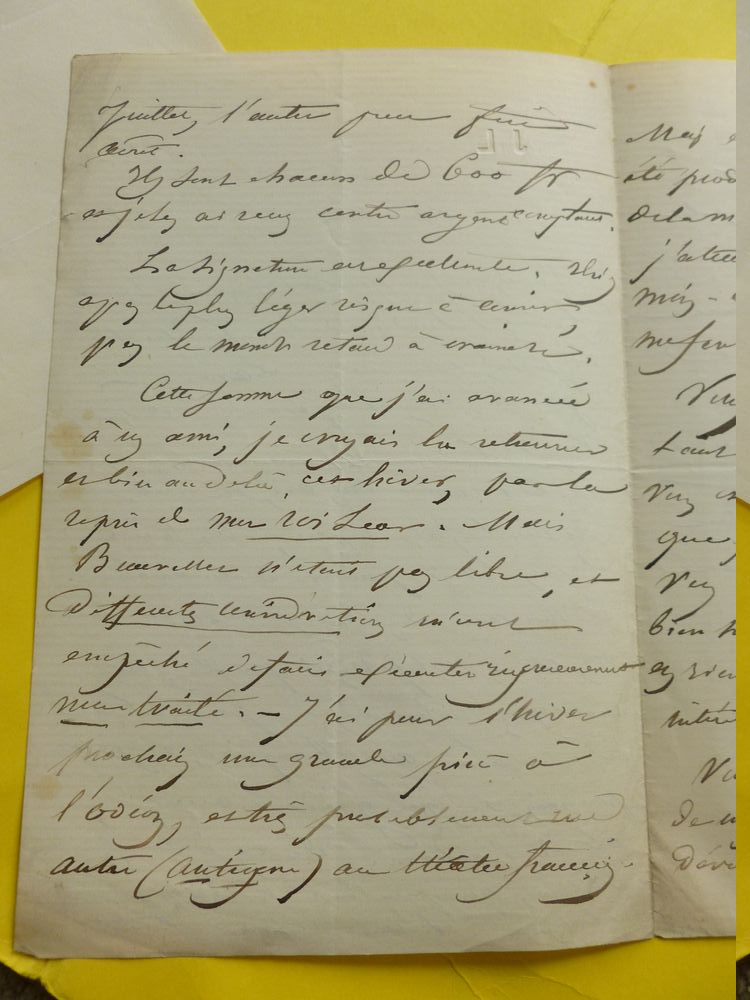 Juillet, l'autre pour fin
août.
Ils sont chacun de 600 fr
et je les ai reçus contre argent comptant.
La signature est excellente. Il n'y
a pas le plus léger risque à courir
pas le moindre retard à craindre.
Cette somme que j'ai avancée
à un ami, je croyais la retrouver
et bien au delà, cet hiver, par la
reprise de mon roi Lear. Mais
Beauvallet n'étant pas libre, et
différentes considérations m'ont
empêché de faire exécuter rigoureusement
mon traité. – J'ai pour l'hiver
prochain une grande pièce à
l'odéon, et très probablement une
autre (antigone) au théâtre français.
Mais
été prod
de la m
j'atten
mois -
me fer
Vou
tant
vous
que
Vou
bien
en rien
intér
Vo
de